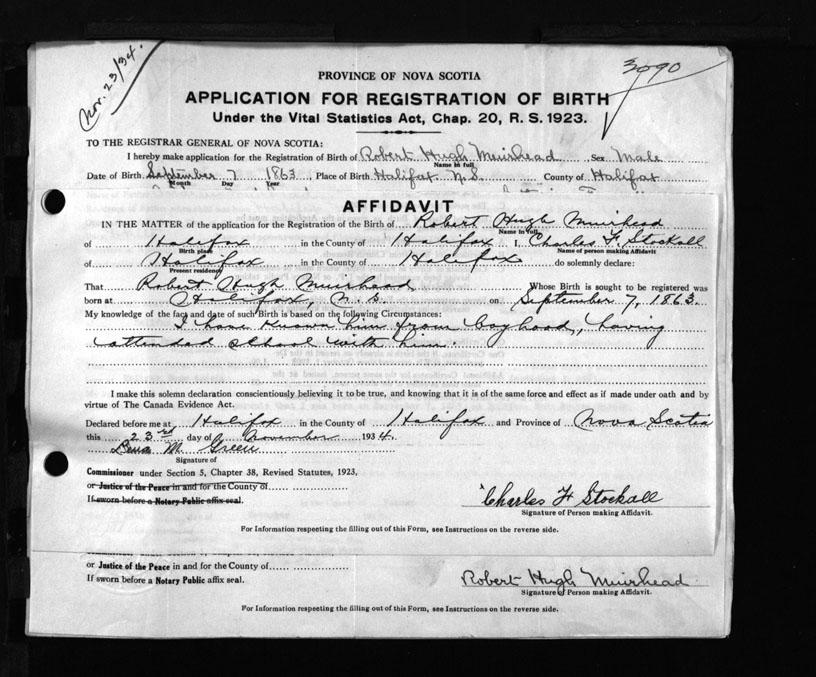 Nov. 23/34.
3090
PROVINCE OF NOVA SCOTIA
APPLICATION FOR REGISTRATION OF BIRTH
Under the Vital Statistics Act, Chap. 20, R. S. 1923.
TO THE REGISTRAR GENERAL OF NOVA SCOTIA:
I hereby make application for the Registration of Birth of Robert Hugh Muirhead Sex Male
Name in full
Date of Birth September 7 1863 Place of Birth Halifax N.S. County of Halifax
Month Day Year
AFFIDAVIT
IN THE MATTER of the application for the Registration of the Birth of Robert Hugh Muirhead
Name in full
of Halifax in the County of Halifax I, Charles F. Stockall
Birth place Name of person making Affidavit
of Halifax in the County of Halifax do solemnly declare:
Present residency
That Robert Hugh Muirhead Whose Birth is sought to be registered was
born at Halifax, N.S. on September 7, 1863
My knowledge of the fact and date of such Birth is based on the following Circumstances:
I have known him from boyhood, having
attended school with him.
I make this solemn declaration conscientiously believing it to be true, and knowing that it is of the same force and effect as if made under oath and by
virtue of The Canada Evidence Act.
Declared before me at Halifax in the County of Halifax and Province of Nova Scotia
this 23rd day of November 1934.
M. Green
Signature of
Commissioner under Section 5, Chapter 38, Revised Statutes, 1923,
or Justice of the Peace in and for the County of
If sworn before a Notary Public affix seal.
Charles F Stockall
Signature of Person making Affidavit.
For Information respecting the filling out of this Form, see Instructions on the reverse side.
or Justice of the Peace in and for the County of
If sworn before a Notary Public affix seal.
Robert Hugh Muirhead
Signature of Person making Affidavit.
For Information respecting the filling out of this Form, see Instructions on the reverse side.